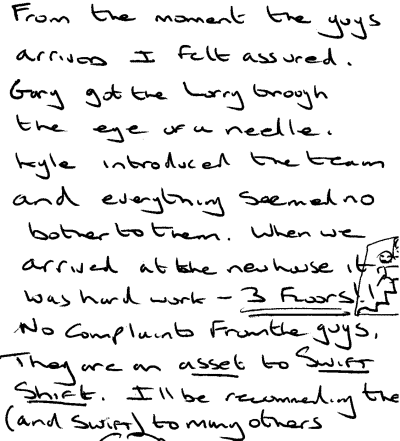 From the moment the guys
arrived I felt assured.
Gary got the lorry through
the eye of a needle.
Kyle introduced the team
and everything seemed no
bother to them. When we
arrived at the new house it
was hard work - 3 Floors!!
No complaints from the guys.
They are an asset to Swift
Shift. I'll be recommending them
(and Swift) to many others